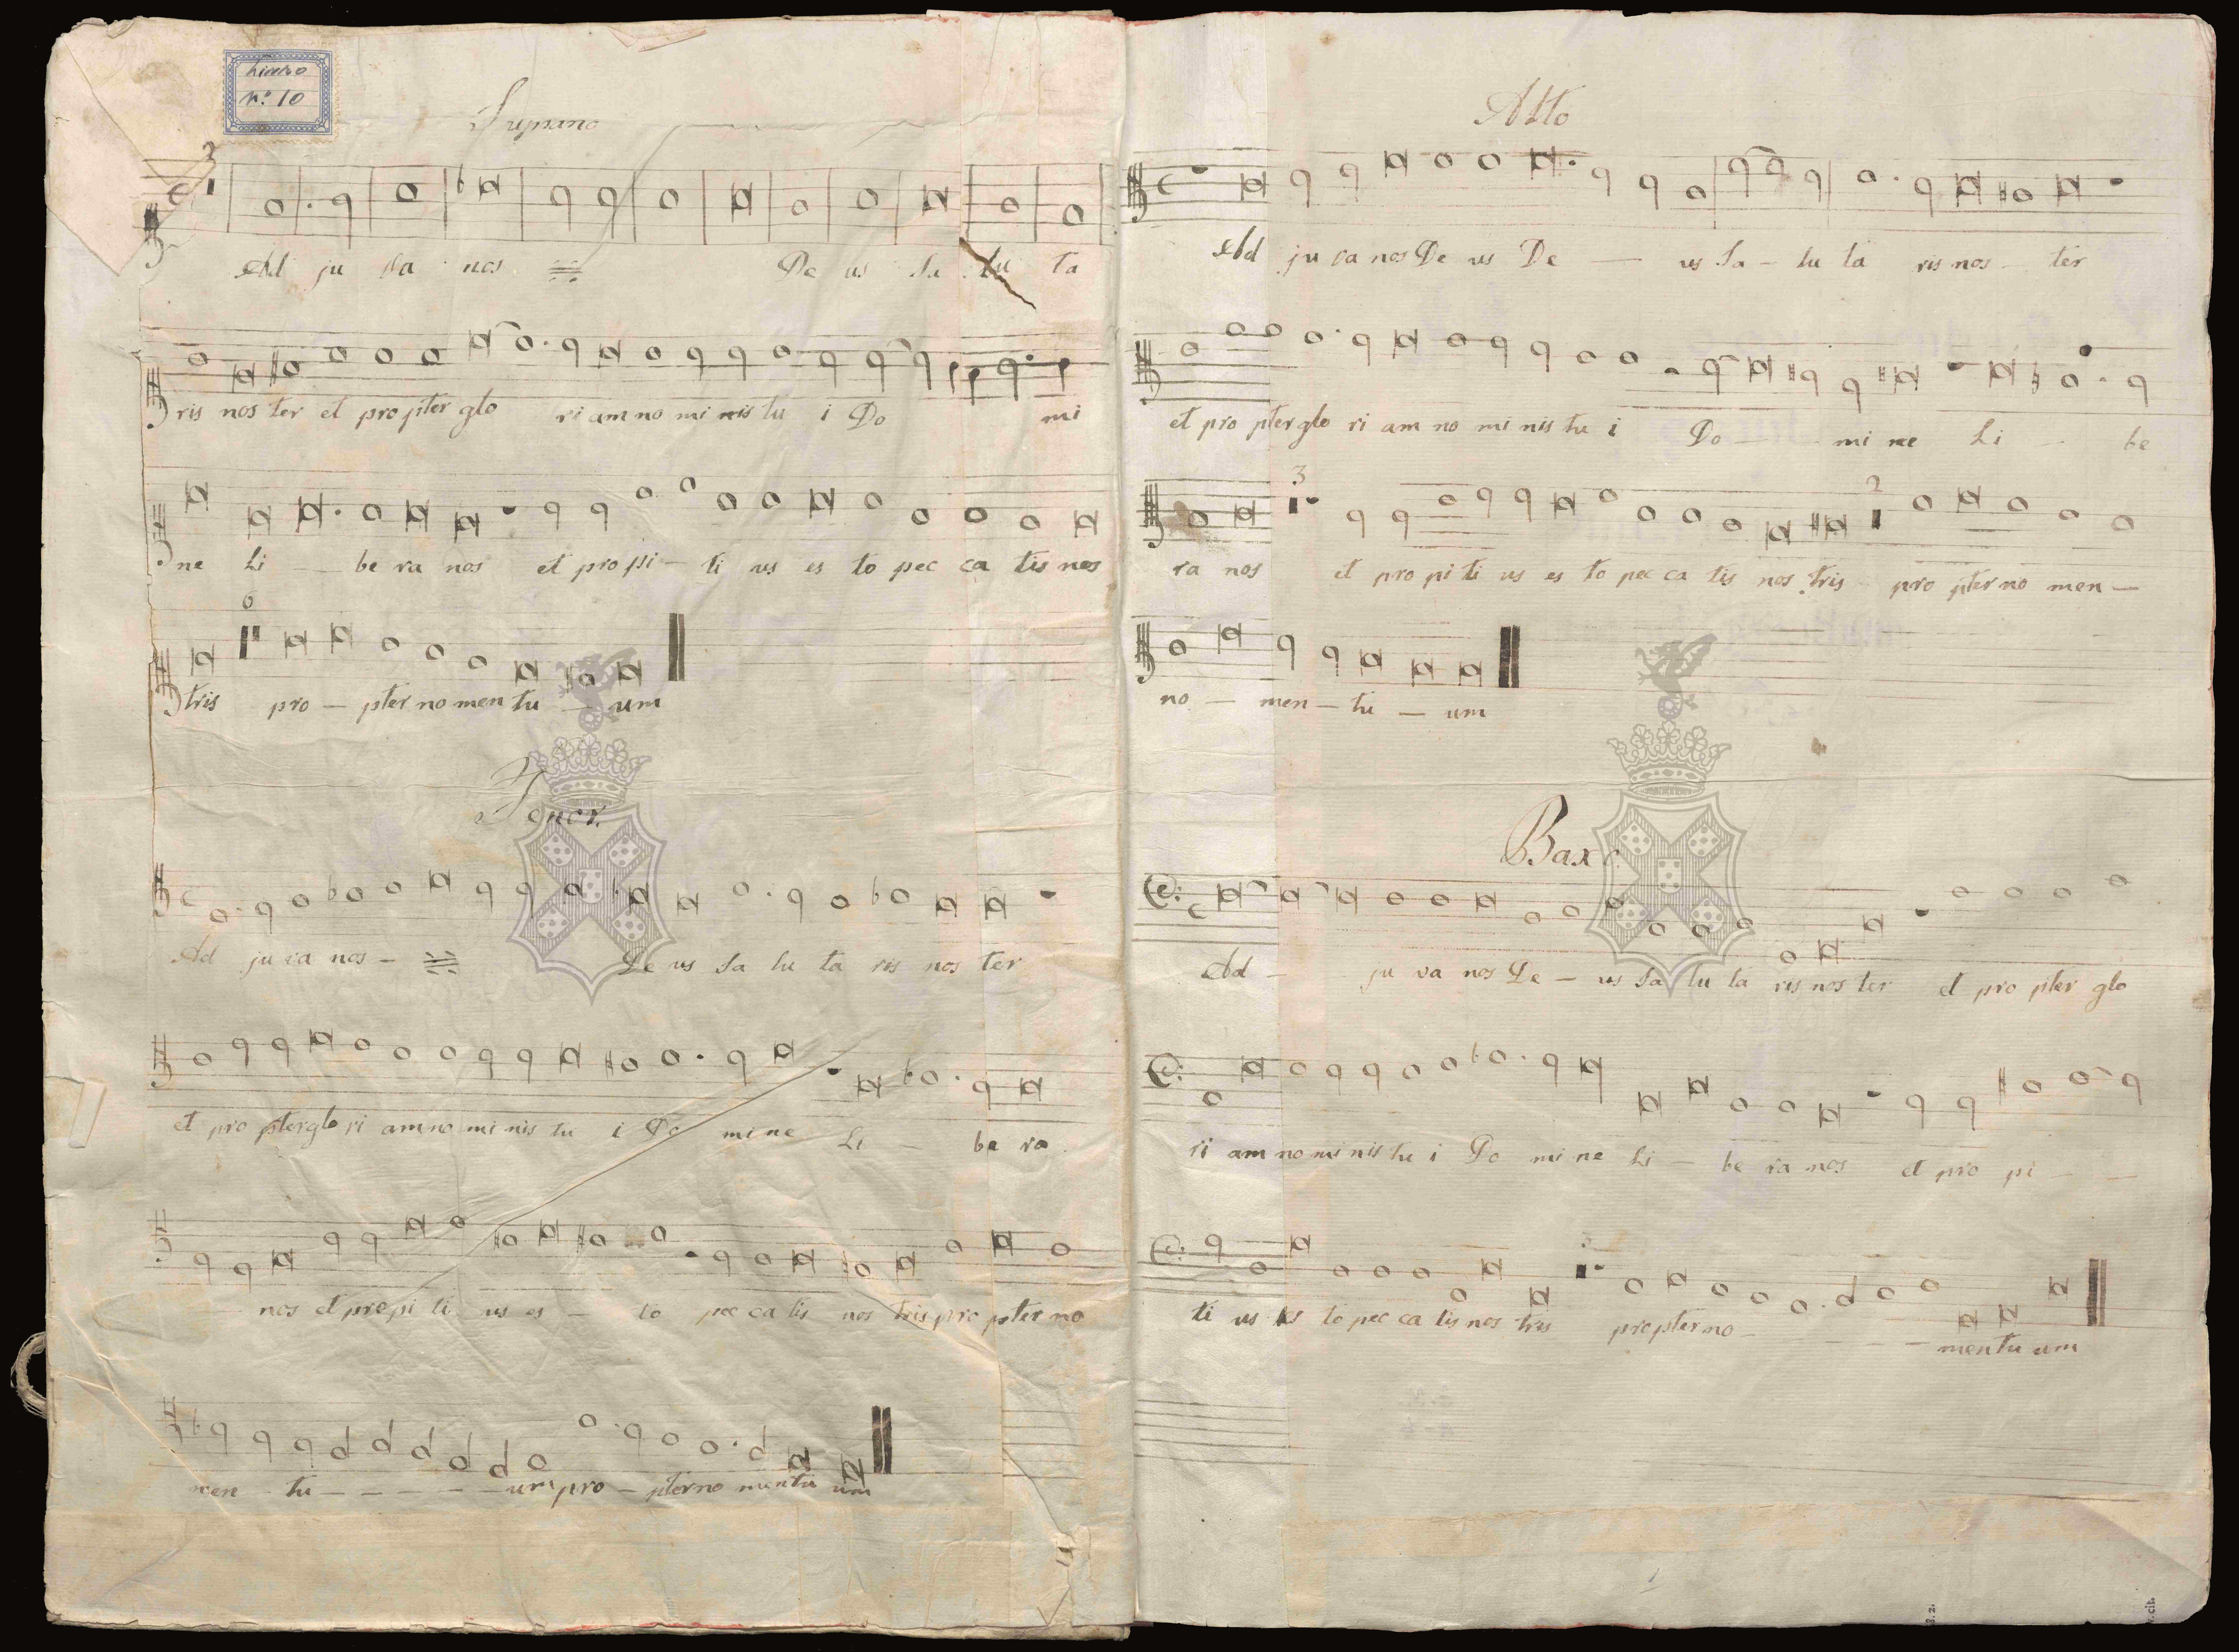 himno
nº 10
Supriano
3
Ad ju va nos De us Sa lu ta
ris nos ter et propter glo ri am no mi nis tu i Do mi
ne Li — be ra nos et propi — ti us es to pec ca tis nos
6
tris pro — pter no men tu — um
Tenor.
Ad ju va nos — De us Sa lu ta ris nos ter
et pro pter glo ri am no mi nis tu i Do mi ne Li — be ra
nos et propi ti us es — to pec ca tis nos tris pro pter no
men — tu — — — — — um pro — pter no men tu um
Alto
Ad ju va nos De us De — us Sa — lu ta ris nos — ter
et pro pter glo ri am no mi nis tu i Do — — mi ne Li — be
3 2
ra nos et pro pi ti us es to pec ca tis nos tris pro pter no men —
no — men — tu — um
Baxo
Ad — ju va nos De — us Sa lu ta ris nos ter et pro pter glo
ri am no mi nis tu i Do mi ne Li — be ra nos et pro pi — —
ti us es to pec ca tis nos tris propter no — — — — men tu um